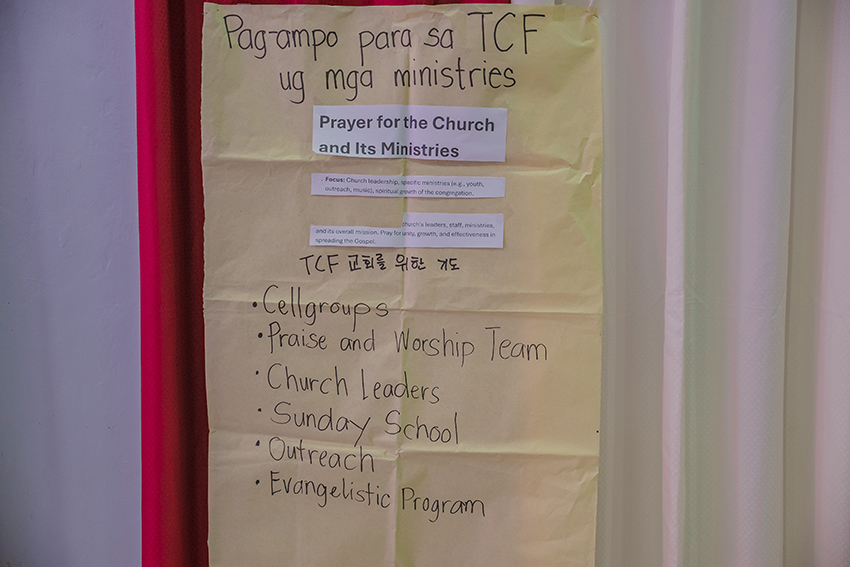 Pag-ampo para sa TCF
ug mga ministries
Prayer for the Church
and Its Ministries
Focus: Church leadership, specific ministries (e.g., youth,
outreach, music), spiritual growth of the congregation.
church's leaders, staff, ministries,
and its overall mission. Pray for unity, growth, and effectiveness in
spreading the Gospel.
TCF 교회를 위한 기도
• Cellgroups
• Praise and Worship Team
• Church Leaders
• Sunday School
• Outreach
• Evangelistic Program